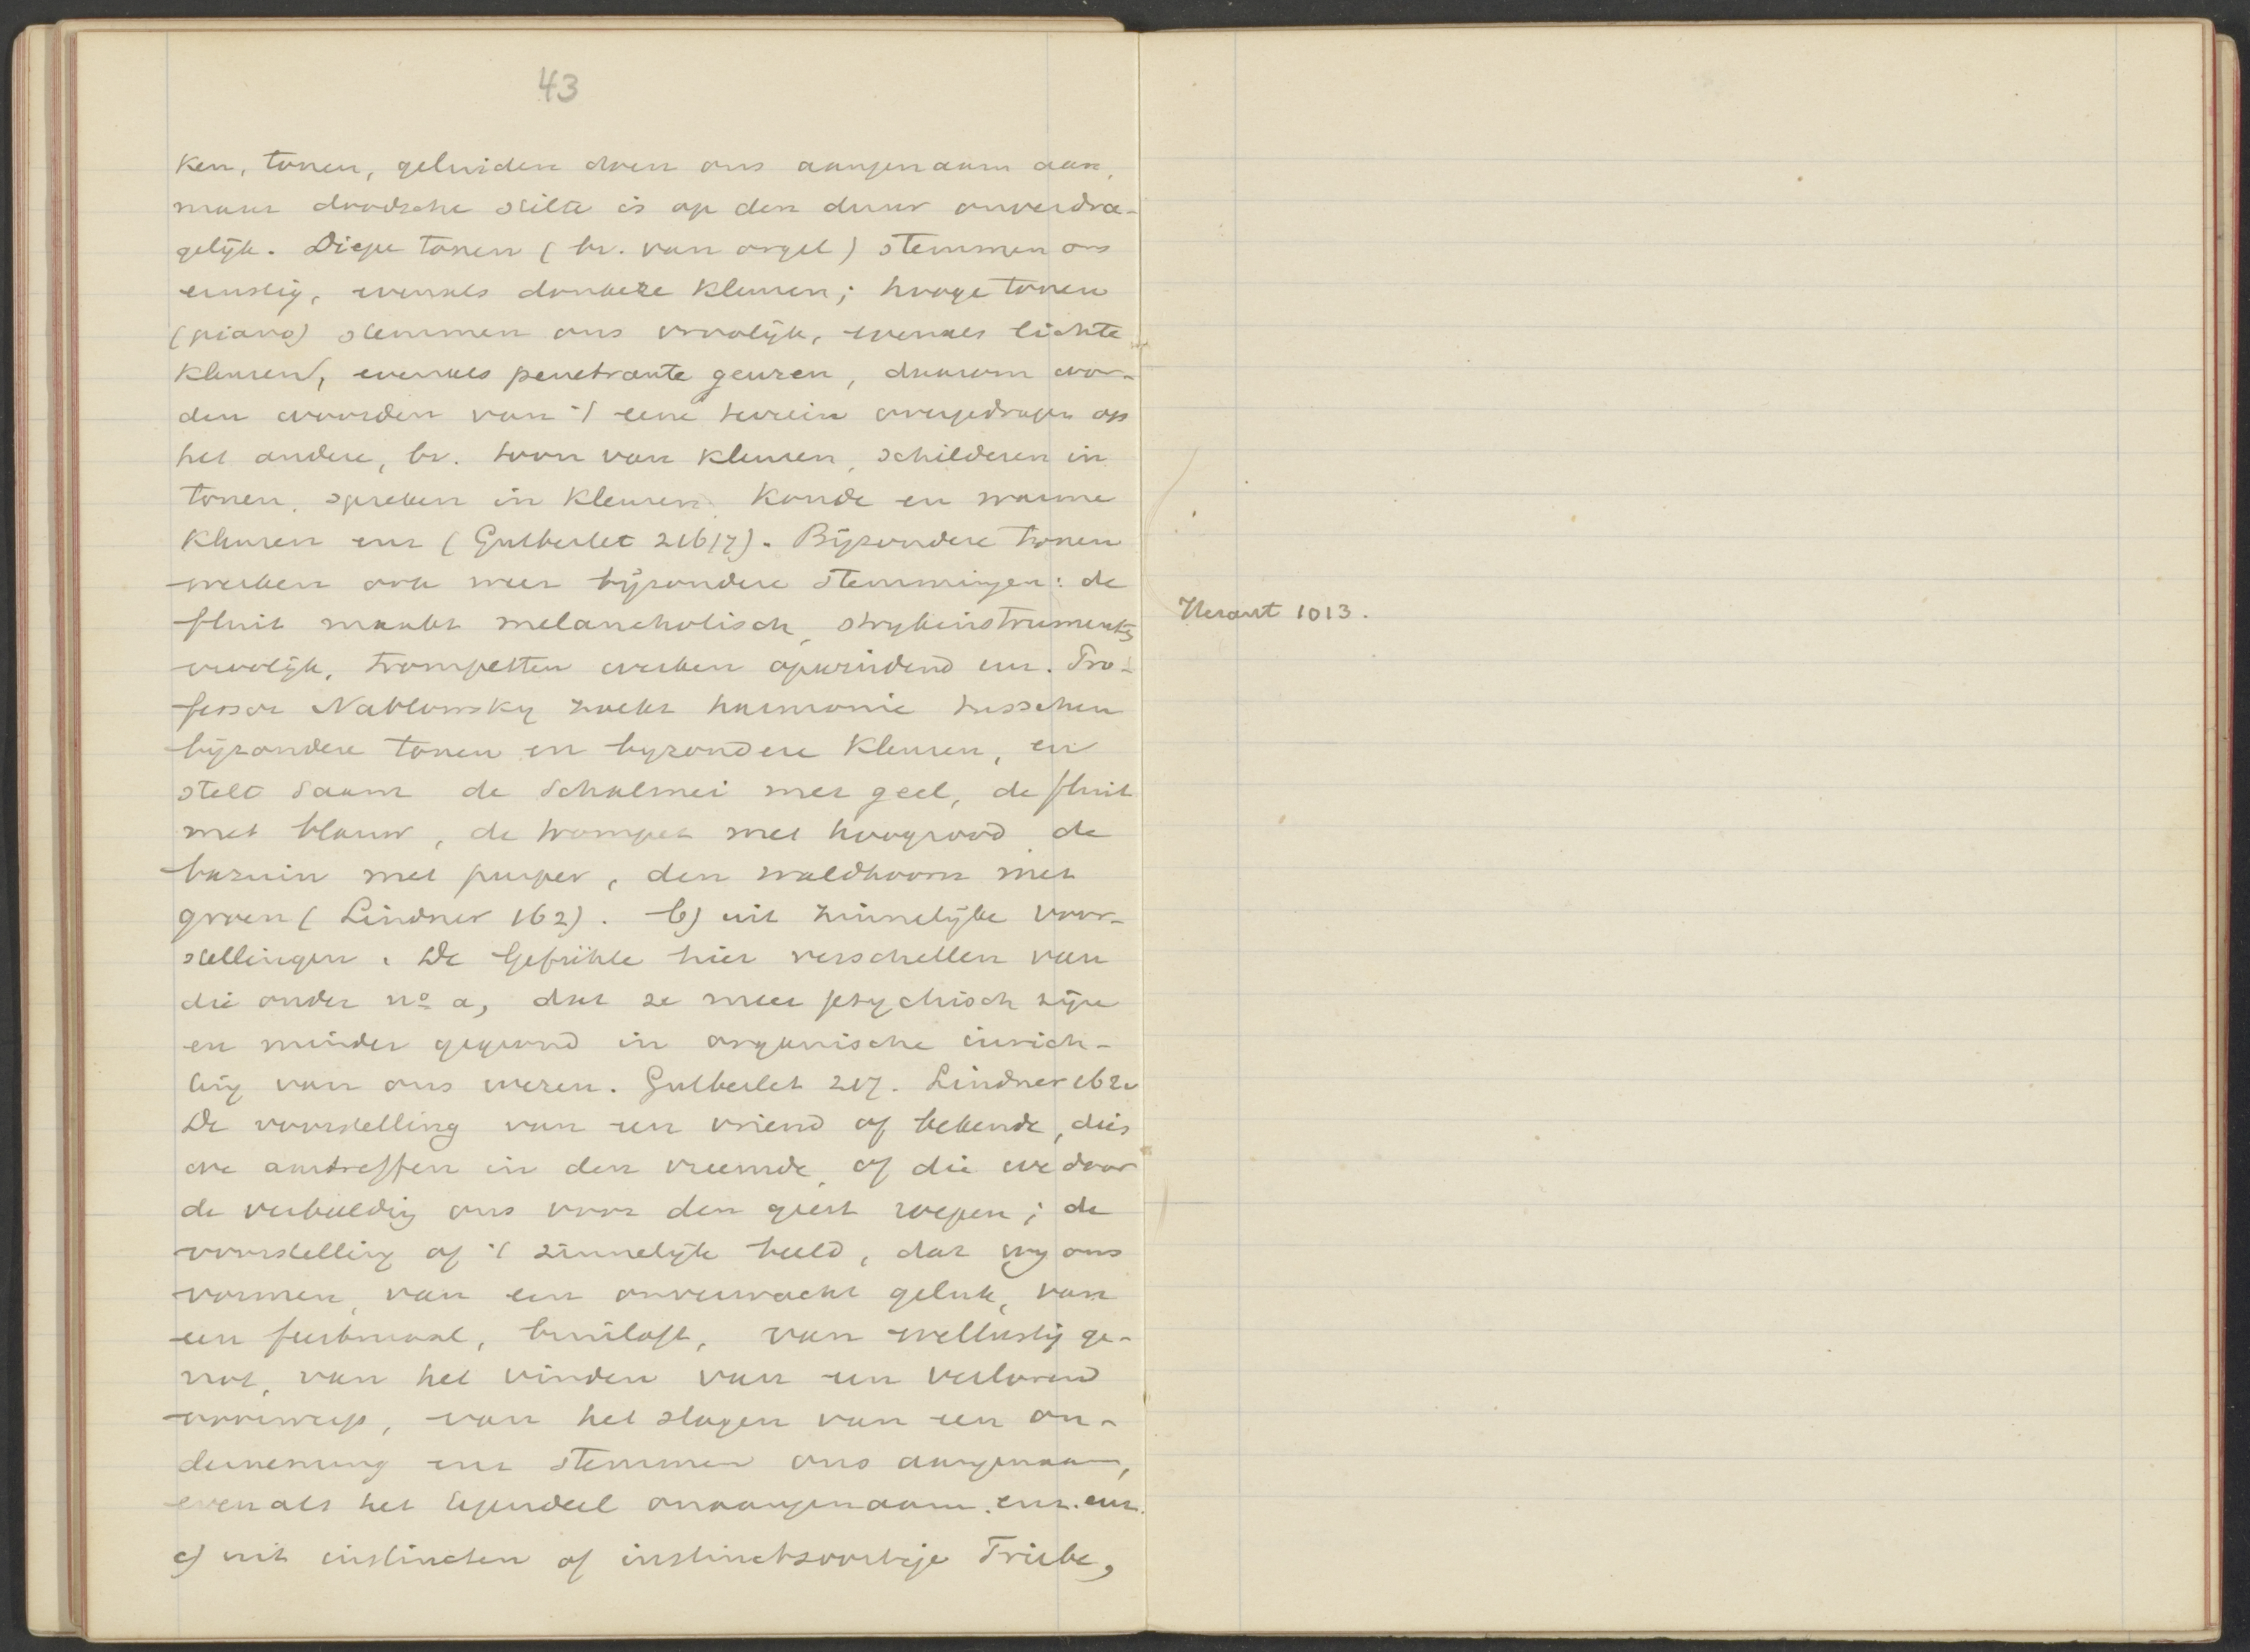 43
ken, tonen, geluiden doen ons aangenaam aan,
maar doodsche stilte is op den duur onverdra-
gelijk. Diepe tonen (bv. van orgel) stemmen ons
ernstig, evenals donkere kleuren; hooge tonen
(piano) stemmen ons vroolijk, evenals lichte
kleuren, evenals penetrante geuren, daarom wor-
den woorden van 't eene terrein overgedragen op
het andere, bv. toon van kleuren, schilderen in
tonen, spreken in kleuren. Koude en warme
kleuren enz (Gutberlet 216/7). Bijzondere tonen
werken ook weer bijzondere stemmingen: de
fluit maakt melancholisch, strykinstrumenten
vroolijk, trompetten werken opwindend enz. Pro-
fessor Nahlowsky zoekt harmonie tusschen
bijzondere tonen en byzondere kleuren, en
stelt saam de Schalmei met geel, de fluit
met blauw, de trompet met hoogrood de
bazuin met purper, den waldhoorn met
groen (Lindner 162). b) uit zinnelijke voor-
stellingen. De Gefühle hier verschillen van
die onder no a, dat ze meer psychisch zijn
en minder gegrond in organische inrich-
ting van ons wezen. Gutberlet 217. Lindner 162.
De voorstelling van een vriend of bekende, dien
we aantreffen in den vreemde, of die we door
de verbeelding ons voor den geest roepen; de
voorstelling of 't zinnelijk beeld, dat wy ons
vormen, van een onverwacht geluk, van
een feestmaal, bruiloft, van wellustig ge-
not, van het vinden van een verloren
voorwerp, van het slagen van een on-
derneming enz stemmen ons aangenaam,
evenals het tegendeel onaangenaam. enz. enz.
c) uit instincten of instinctsoortige Triebe,
Heraut 1013.